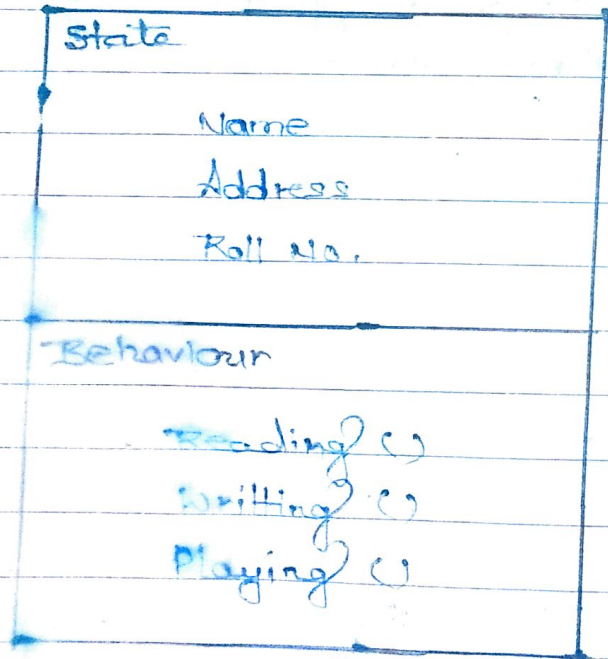 State
Name
Address
Roll No.
Behaviour
Reading ()
Writting ()
Playing ()